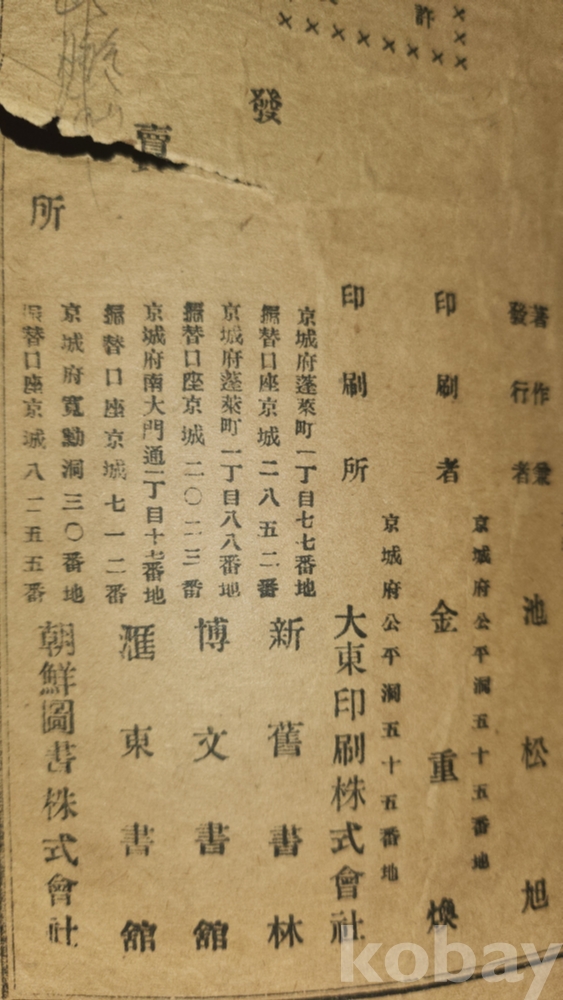 著作兼
發行者
池松旭
京城府公平洞五十五番地
印刷者
金重煥
京城府公平洞五十五番地
印刷所
大東印刷株式會社
發賣所
京城府蓬萊町一丁目七七番地
振替口座京城二八五二番
新舊書林
京城府蓬萊町一丁目八八番地
振替口座京城二〇二三番
博文書館
京城府南大門通一丁目十七番地
振替口座京城七一二番
滙東書館
京城府寬勳洞三〇番地
振替口座京城八一二五五番
朝鮮圖書株式會社
kobay